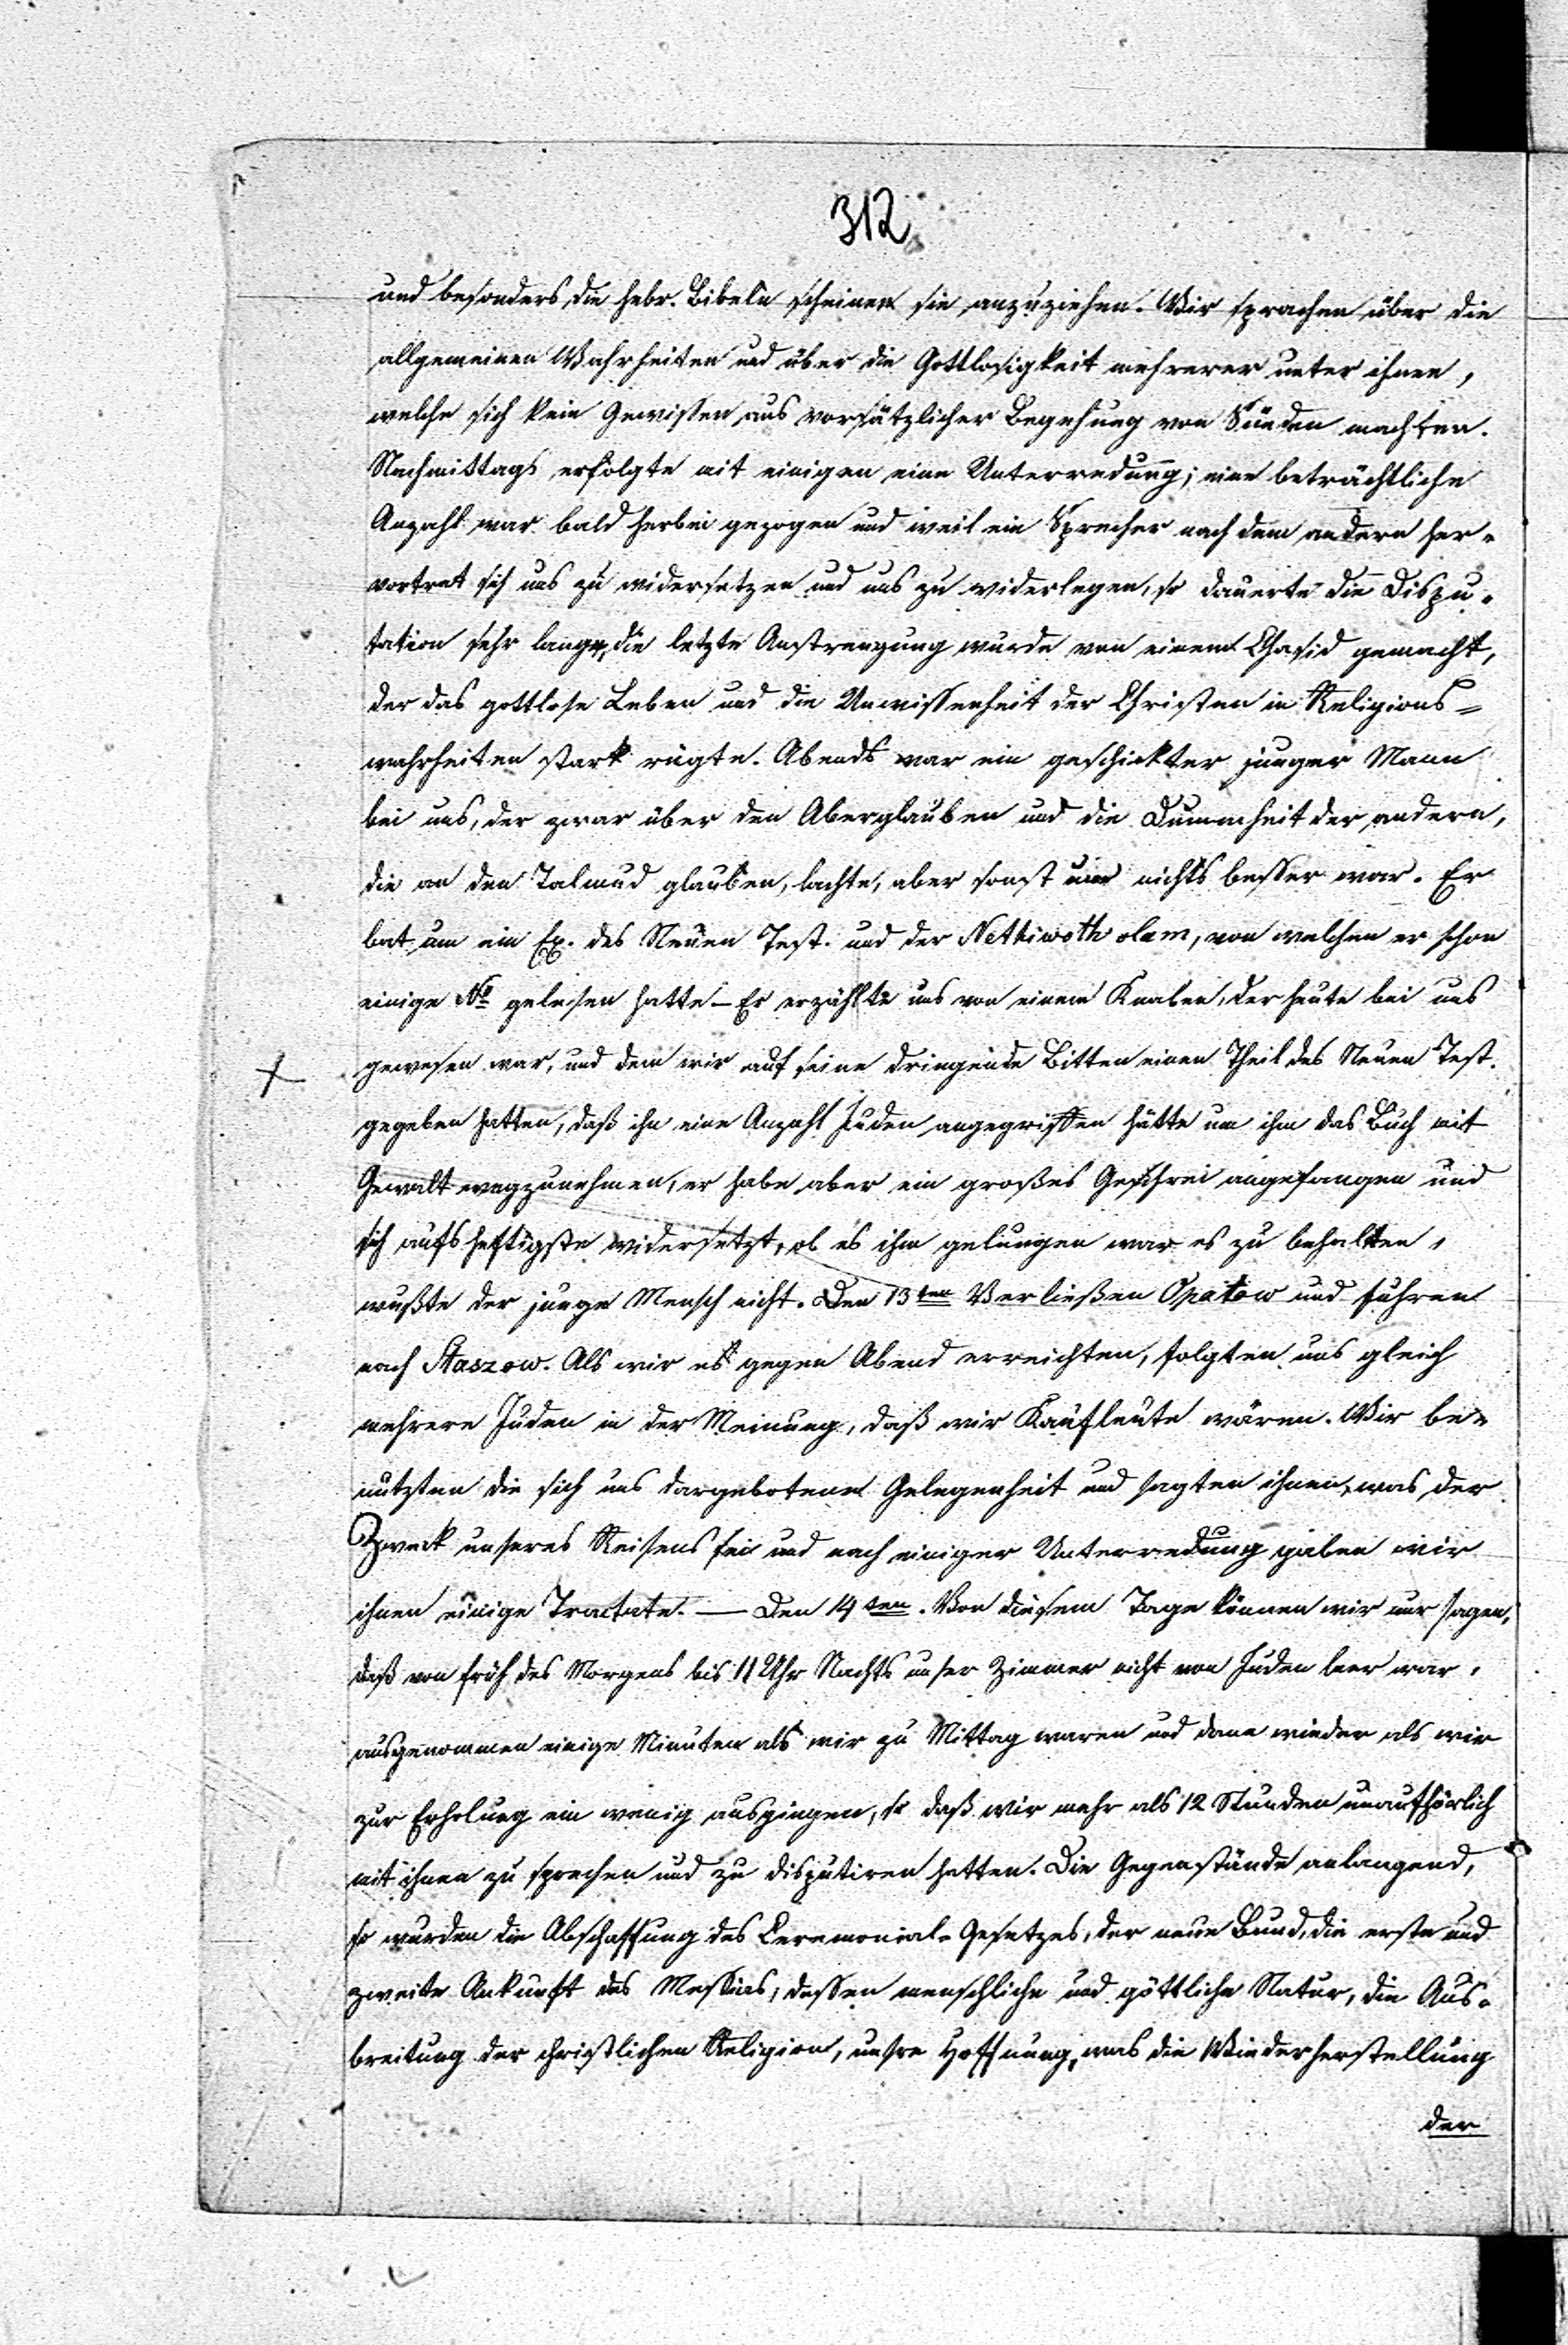 312
und besonders die hebr. Bibeln scheinen sie anzuziehen. Wir sprachen über die
allgemeinen Wahrheiten und über die Gottlosigkeit mehrerer unter ihnen,
welche sich kein Gewissen aus vorsätzlicher Begehung von Sünden machten.
Nachmittags erfolgte mit einigen eine Unterredung; eine beträchtliche
Anzahl war bald herbei gezogen und weil ein Sprecher nach dem andern her-
vortrat sich uns zu widersetzen und uns zu widerlegen, so dauerte die Dispu-
tation sehr lange, die letzte Anstrengung wurde von einem Chasid gemacht,
der das gottlose Leben und die Unwissenheit der Christen in Religions-
wahrheiten stark rügte. Abends war ein geschickter junger Mann
bei uns, der zwar über den Aberglauben und die Dummheit der andern,
die an den Talmud glauben, lachte, aber sonst um nichts besser war. Er
bat um ein Ex. des Neuen Test. und der Nethiwoth olam, von welchen er schon
einige No gelesen hatte – Er erzählte uns von einem Knaben, der heute bei uns
gewesen war, und dem wir auf seine dringende Bitten einen Theil des Neuen Test.
gegeben hatten, daß ihn eine Anzahl Juden angegriffen hätte um ihm das Buch mit
Gewalt wegzunehmen, er habe aber ein großes Geschrei angefangen und
sich aufs heftigste widersetzt, ob es ihm gelungen war es zu behalten,
wußte der junge Mensch nicht. Den 13ten Verließen Opatow und fuhren
nach Staszow. Als wir es gegen Abend erreichten, folgten uns gleich
mehrere Juden in der Meinung, daß wir Kaufleute wären. Wir be-
nutzten die sich uns dargebotene Gelegenheit und sagten ihnen, was der
Zweck unseres Reisens sei und nach einiger Unterredung gaben wir
ihnen einige Tractate. — Den 14ten. Von diesem Tage können wir nur sagen,
daß von früh des Morgens bis 11 Uhr Nachts unser Zimmer nicht von Juden leer war,
ausgenommen einige Minuten als wir zu Mittag waren und dann wieder als wir
zur Erholung ein wenig ausgingen, so daß wir mehr als 12 Stunden unaufhörlich
mit ihnen zu sprechen und zu disputiren hatten. Die Gegenstände anlangend,
so wurden die Abschaffung des Ceremonial-Gesetzes, der neue Bund, die erste und
zweite Ankunft des Messias, dessen menschliche und göttliche Natur, die Aus-
breitung der christlichen Religion, unsre Hoffnung, was die Wiederherstellung
der